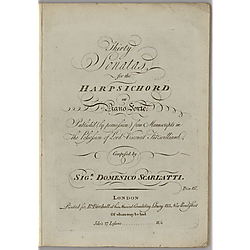 Thirty
Sonatas,
for the
HARPSICHORD
or
Piano-Forte;
Publish'd (by permission) from Manuscripts in
the Possession of Lord Viscount Fitzwilliam;
Composed by
SIGR. DOMENICO SCARLATTI.
LONDON
Printed for Rt. Birchall at his Musical Circulating Library 133, New Bond Street
Of whom may be had